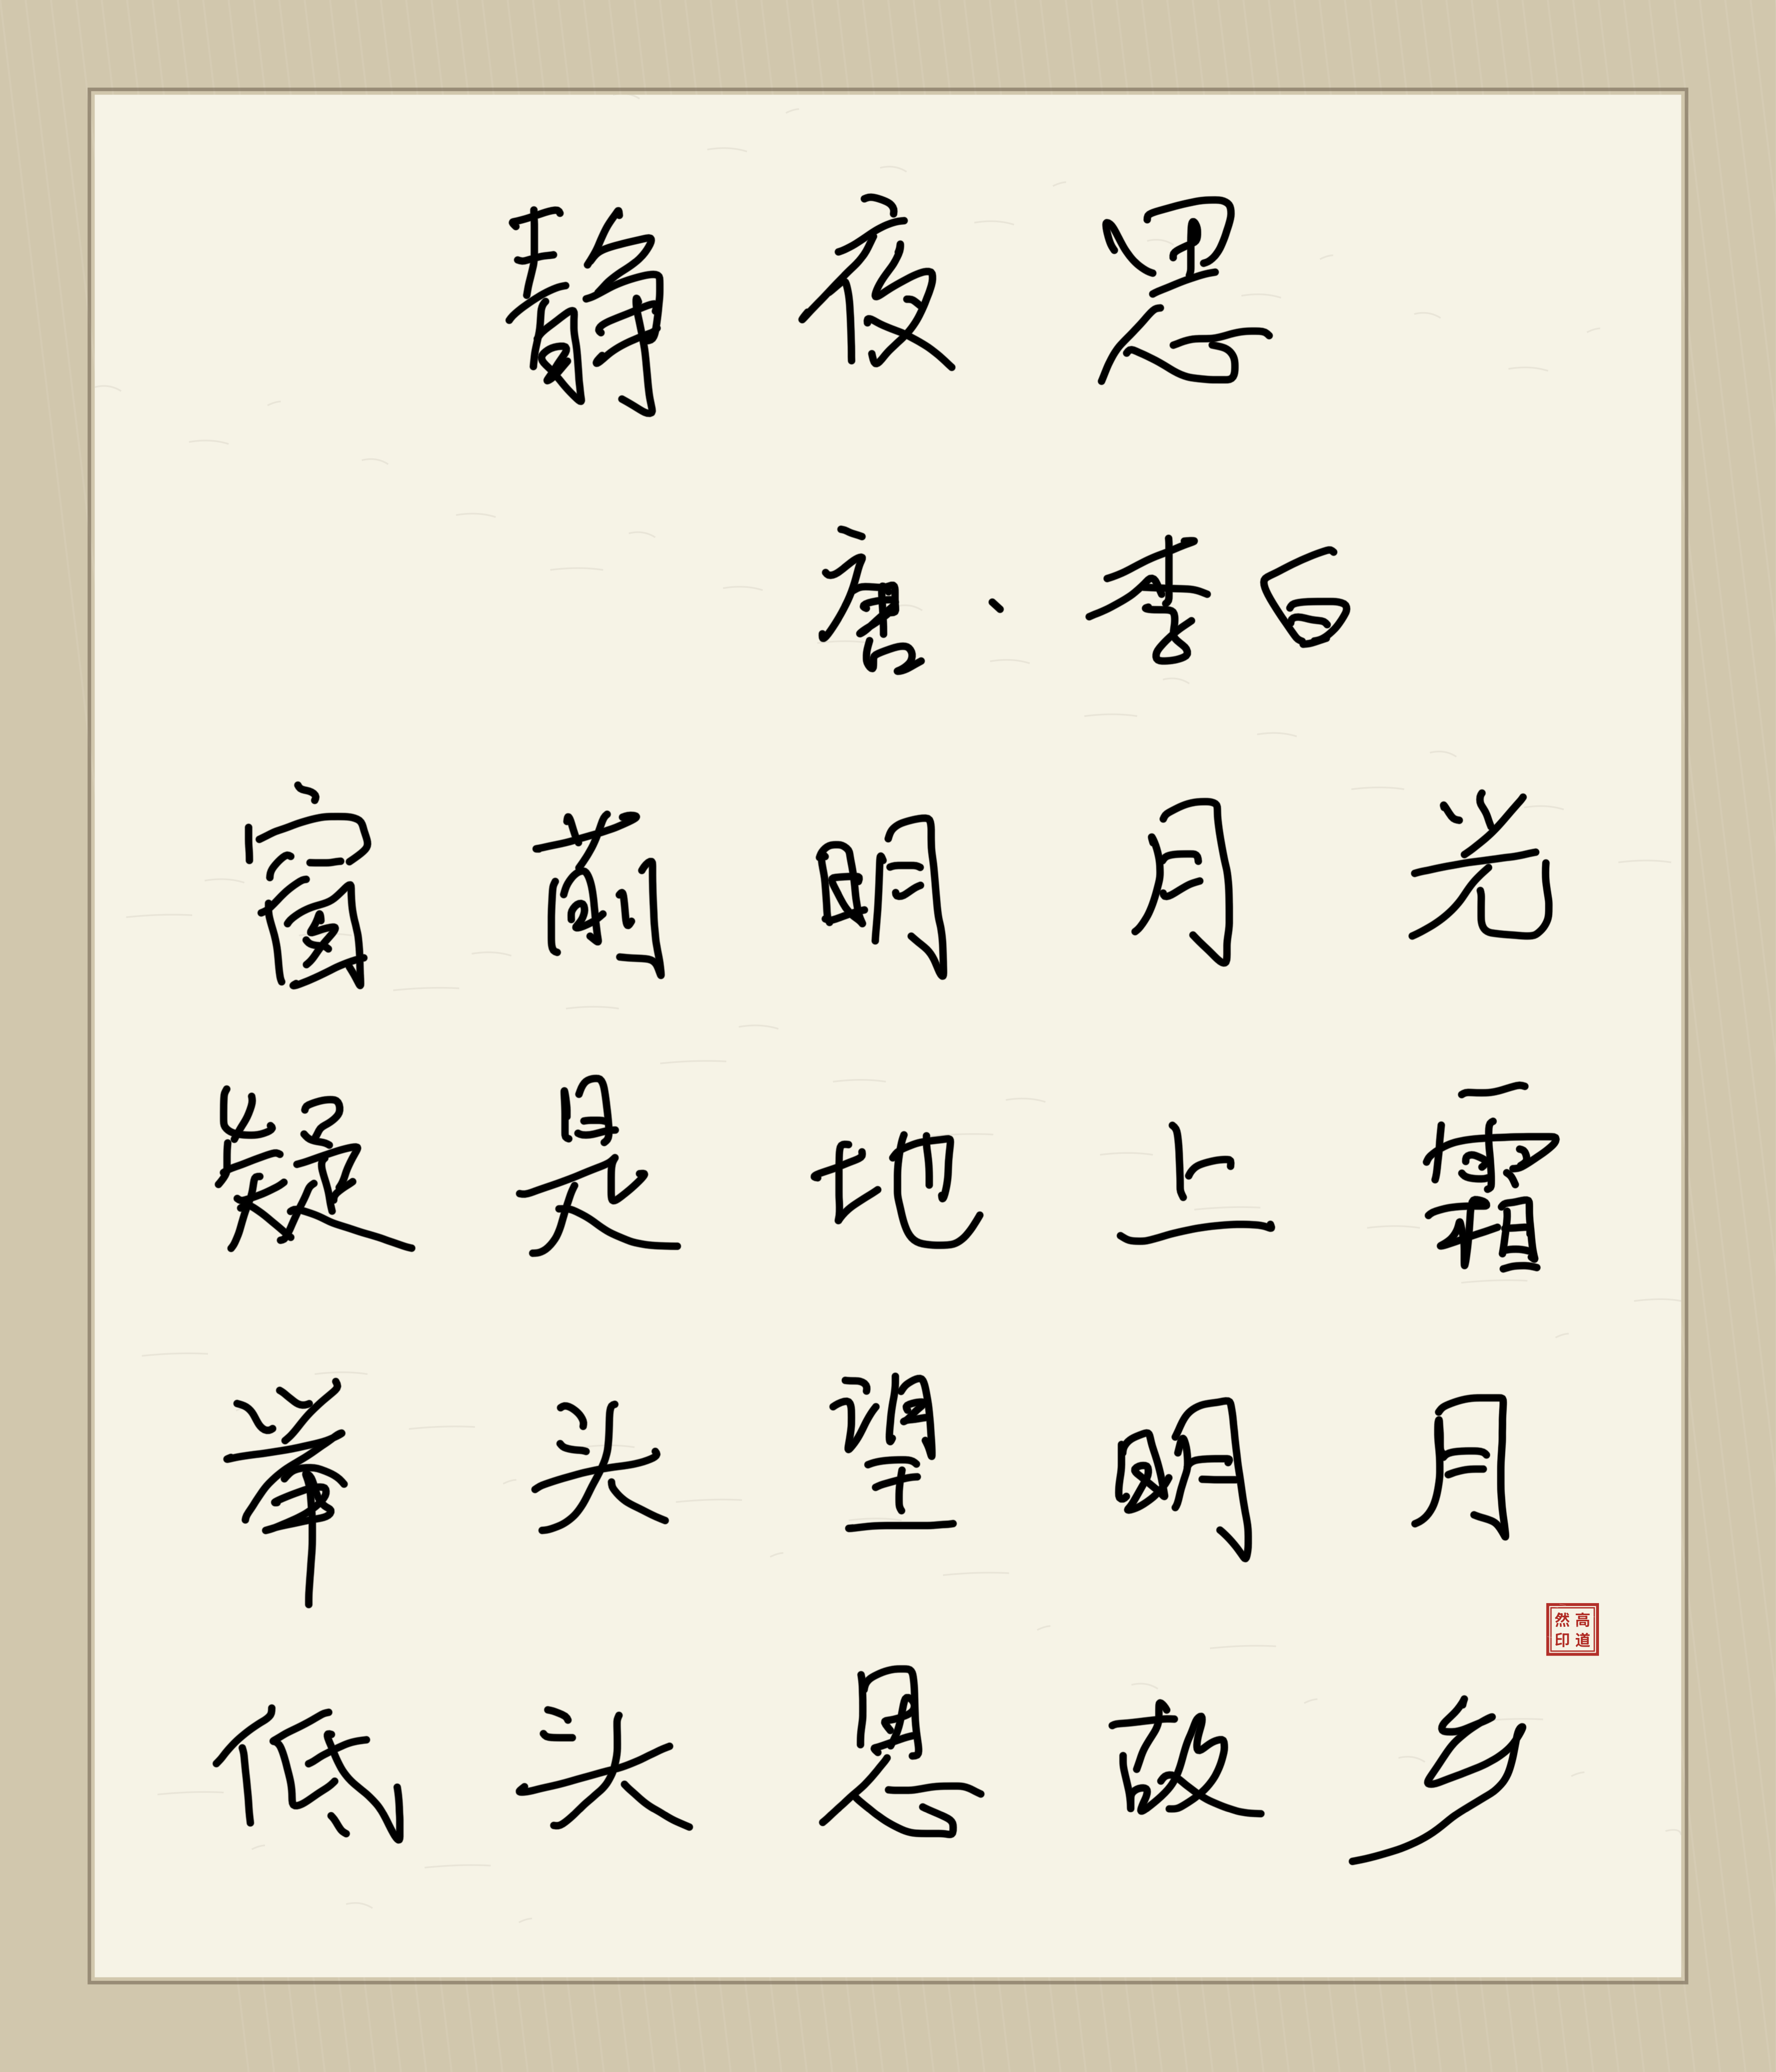 静夜思
唐·李白
窗前明月光
疑是地上霜
举头望明月
低头思故乡
高道然印